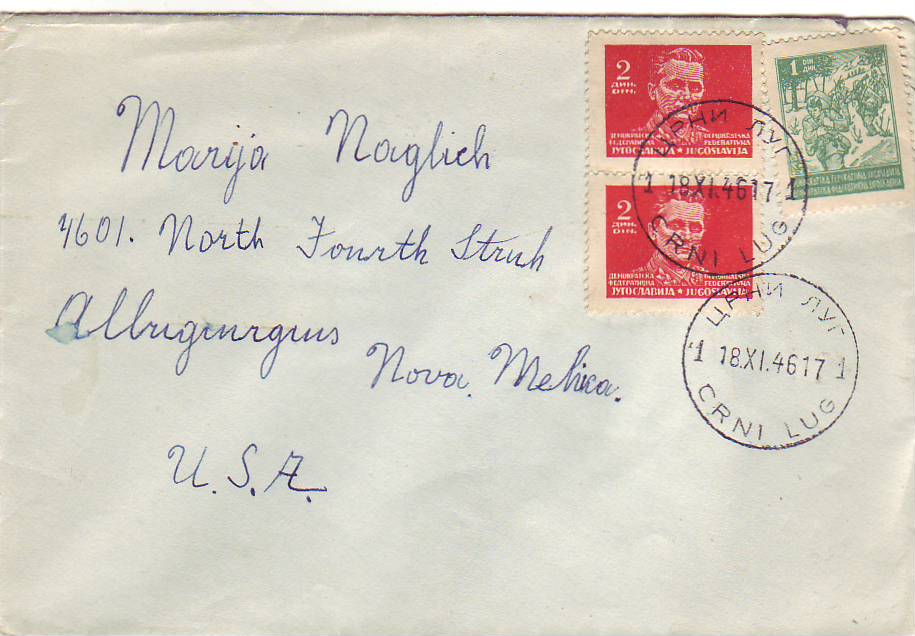 Marija Naglich
4601. North Fourth Struh
Albugurgus
Nova Mehica.
U.S.A.
2
ДИН.
DIN.
ДЕМОКРАТСКА ФЕДЕРАТИВНА ЈУГОСЛАВИЈА ★ DEMOKRATSKA FEDERATIVNA JUGOSLAVIJA
2
ДИН.
DIN.
ДЕМОКРАТСКА ФЕДЕРАТИВНА ЈУГОСЛАВИЈА ★ DEMOKRATSKA FEDERATIVNA JUGOSLAVIJA
1 DIN.
ДИН.
ЦРНИ ЛУГ
1 18.XI.46 17 1
CRNI LUG
ЦРНИ ЛУГ
1 18.XI.46 17 1
CRNI LUG